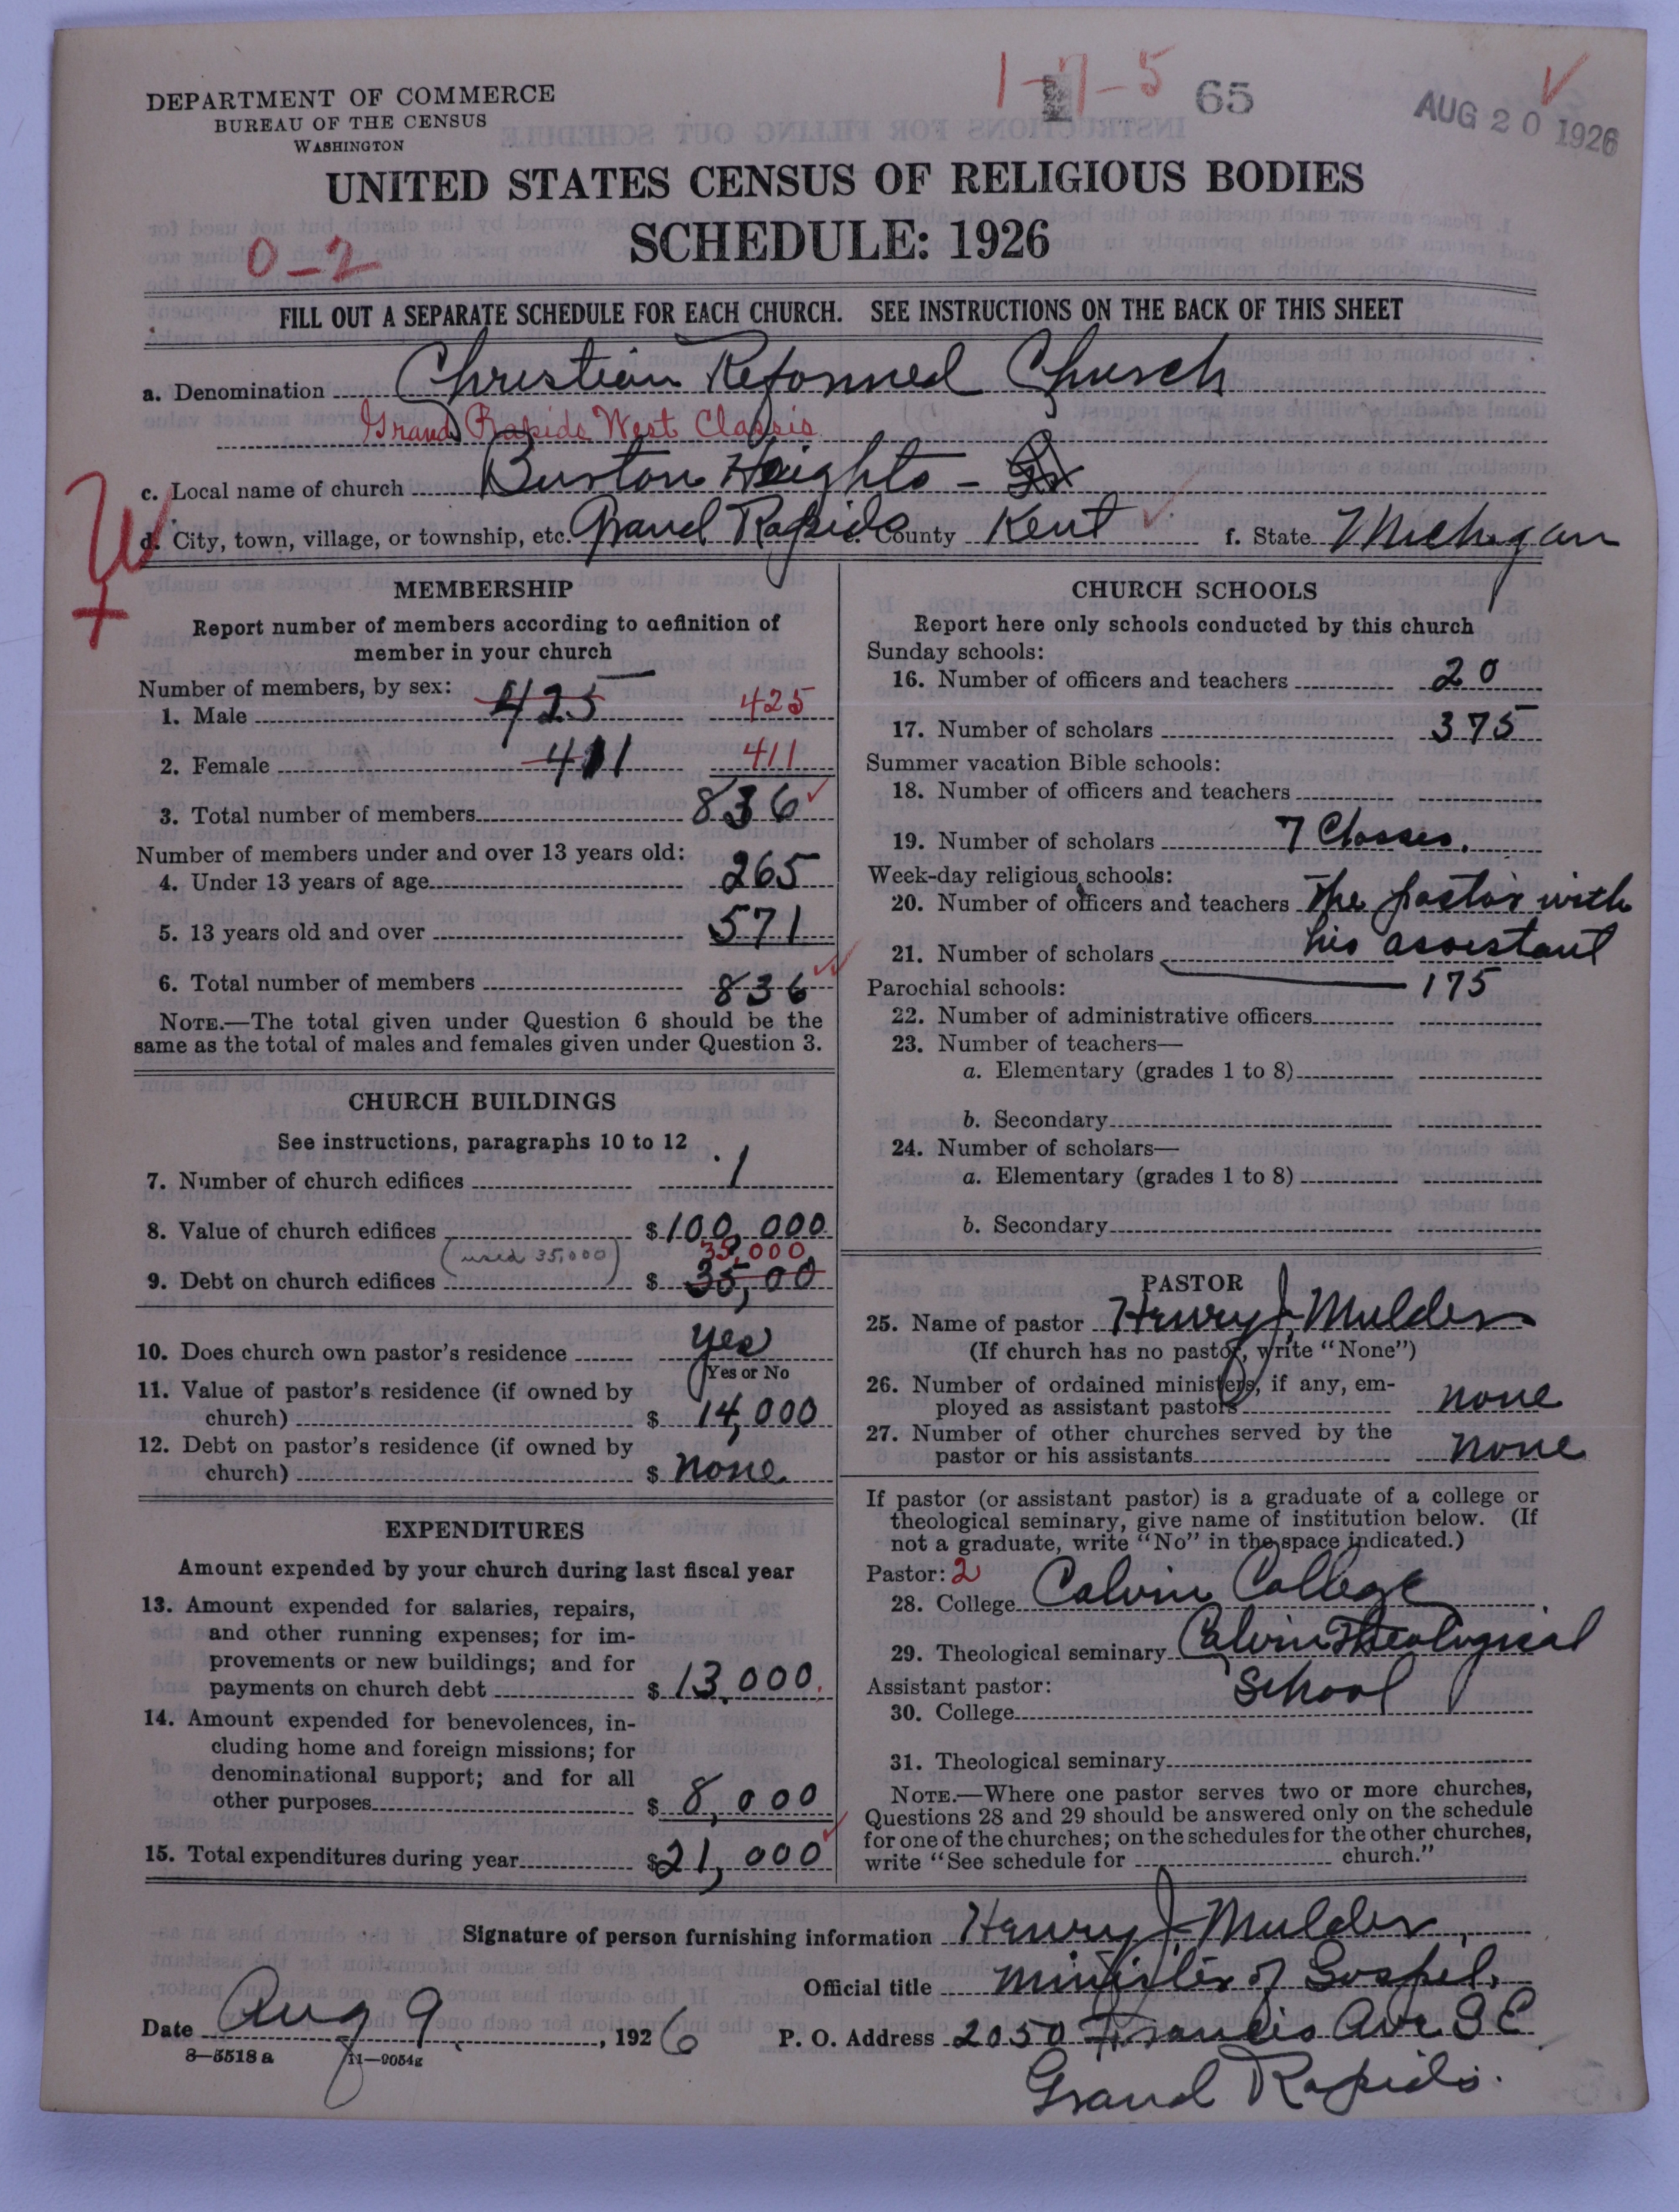 1-7-5 65
AUG 20 1926
DEPARTMENT OF COMMERCE
BUREAU OF THE CENSUS
WASHINGTON
UNITED STATES CENSUS OF RELIGIOUS BODIES
SCHEDULE: 1926
0-2
FILL OUT A SEPARATE SCHEDULE FOR EACH CHURCH. SEE INSTRUCTIONS ON THE BACK OF THIS SHEET
a. Denomination Christian Reformed Church
Grand Rapids West Classis
c. Local name of church Burton Heights -
d. City, town, village, or township, etc. Grand Rapids e. County Kent f. State Michigan
W
MEMBERSHIP
Report number of members according to definition of
member in your church
Number of members, by sex:
1. Male 425 425
2. Female 411 411
3. Total number of members 836
Number of members under and over 13 years old:
4. Under 13 years of age 265
5. 13 years old and over 571
6. Total number of members 836
NOTE.—The total given under Question 6 should be the
same as the total of males and females given under Question 3.
CHURCH BUILDINGS
See instructions, paragraphs 10 to 12
7. Number of church edifices 1
8. Value of church edifices $ 100,000
(used 35,000) 35,000
9. Debt on church edifices $ 35,00
10. Does church own pastor's residence yes
Yes or No
11. Value of pastor's residence (if owned by
church) $ 14,000
12. Debt on pastor's residence (if owned by
church) $ none.
EXPENDITURES
Amount expended by your church during last fiscal year
13. Amount expended for salaries, repairs,
and other running expenses; for im-
provements or new buildings; and for
payments on church debt $ 13,000.
14. Amount expended for benevolences, in-
cluding home and foreign missions; for
denominational support; and for all
other purposes $ 8,000
15. Total expenditures during year $ 21,000
CHURCH SCHOOLS
Report here only schools conducted by this church
Sunday schools:
16. Number of officers and teachers 20
17. Number of scholars 375
Summer vacation Bible schools:
18. Number of officers and teachers
19. Number of scholars 7 Classes.
Week-day religious schools:
20. Number of officers and teachers The pastor with
his assistant
21. Number of scholars 175
Parochial schools:
22. Number of administrative officers
23. Number of teachers—
a. Elementary (grades 1 to 8)
b. Secondary
24. Number of scholars—
a. Elementary (grades 1 to 8)
b. Secondary
PASTOR
25. Name of pastor Henry J. Mulder
(If church has no pastor, write "None")
26. Number of ordained ministers, if any, em-
ployed as assistant pastors none
27. Number of other churches served by the
pastor or his assistants none
If pastor (or assistant pastor) is a graduate of a college or
theological seminary, give name of institution below. (If
not a graduate, write "No" in the space indicated.)
Pastor: 2
28. College Calvin College
29. Theological seminary Calvin Theological
School
Assistant pastor:
30. College
31. Theological seminary
NOTE.—Where one pastor serves two or more churches,
Questions 28 and 29 should be answered only on the schedule
for one of the churches; on the schedules for the other churches,
write "See schedule for church."
Signature of person furnishing information Henry J. Mulder
Official title Minister of Gospel.
Date Aug 9, 1926 P. O. Address 2050 Francis Ave. S E
Grand Rapids.
8-5518 a 11-9054g